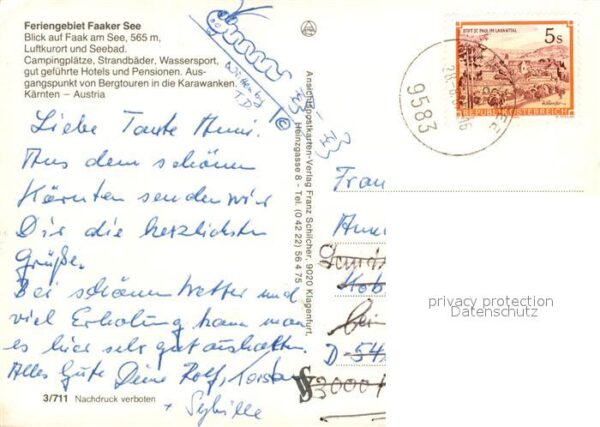 Feriengebiet Faaker See
Blick auf Faak am See, 565 m,
Luftkurort und Seebad.
Campingplätze, Strandbäder, Wassersport,
gut geführte Hotels und Pensionen. Aus-
gangspunkt von Bergtouren in die Karawanken.
Kärnten – Austria
Liebe Tante Anni.
Aus dem schönen
Kärnten senden wir
Dir die herzlichsten
Grüße.
Bei schönem Wetter und
viel Erholung kann man
es hier sehr gut aushalten.
Alles Gute Deine Rolf, Torsten
+ Sybille
3/711 Nachdruck verboten
Ansichtspostkarten-Verlag Franz Schilcher, 9020 Klagenfurt,
Heinzgasse 8 - Tel. (0 42 22) 56 4 75
STIFT ST. PAUL IM LAVANTTAL
5 S
REPUBLIK ÖSTERREICH
9583
Frau
Anni
D-54
3000
privacy protection
Datenschutz